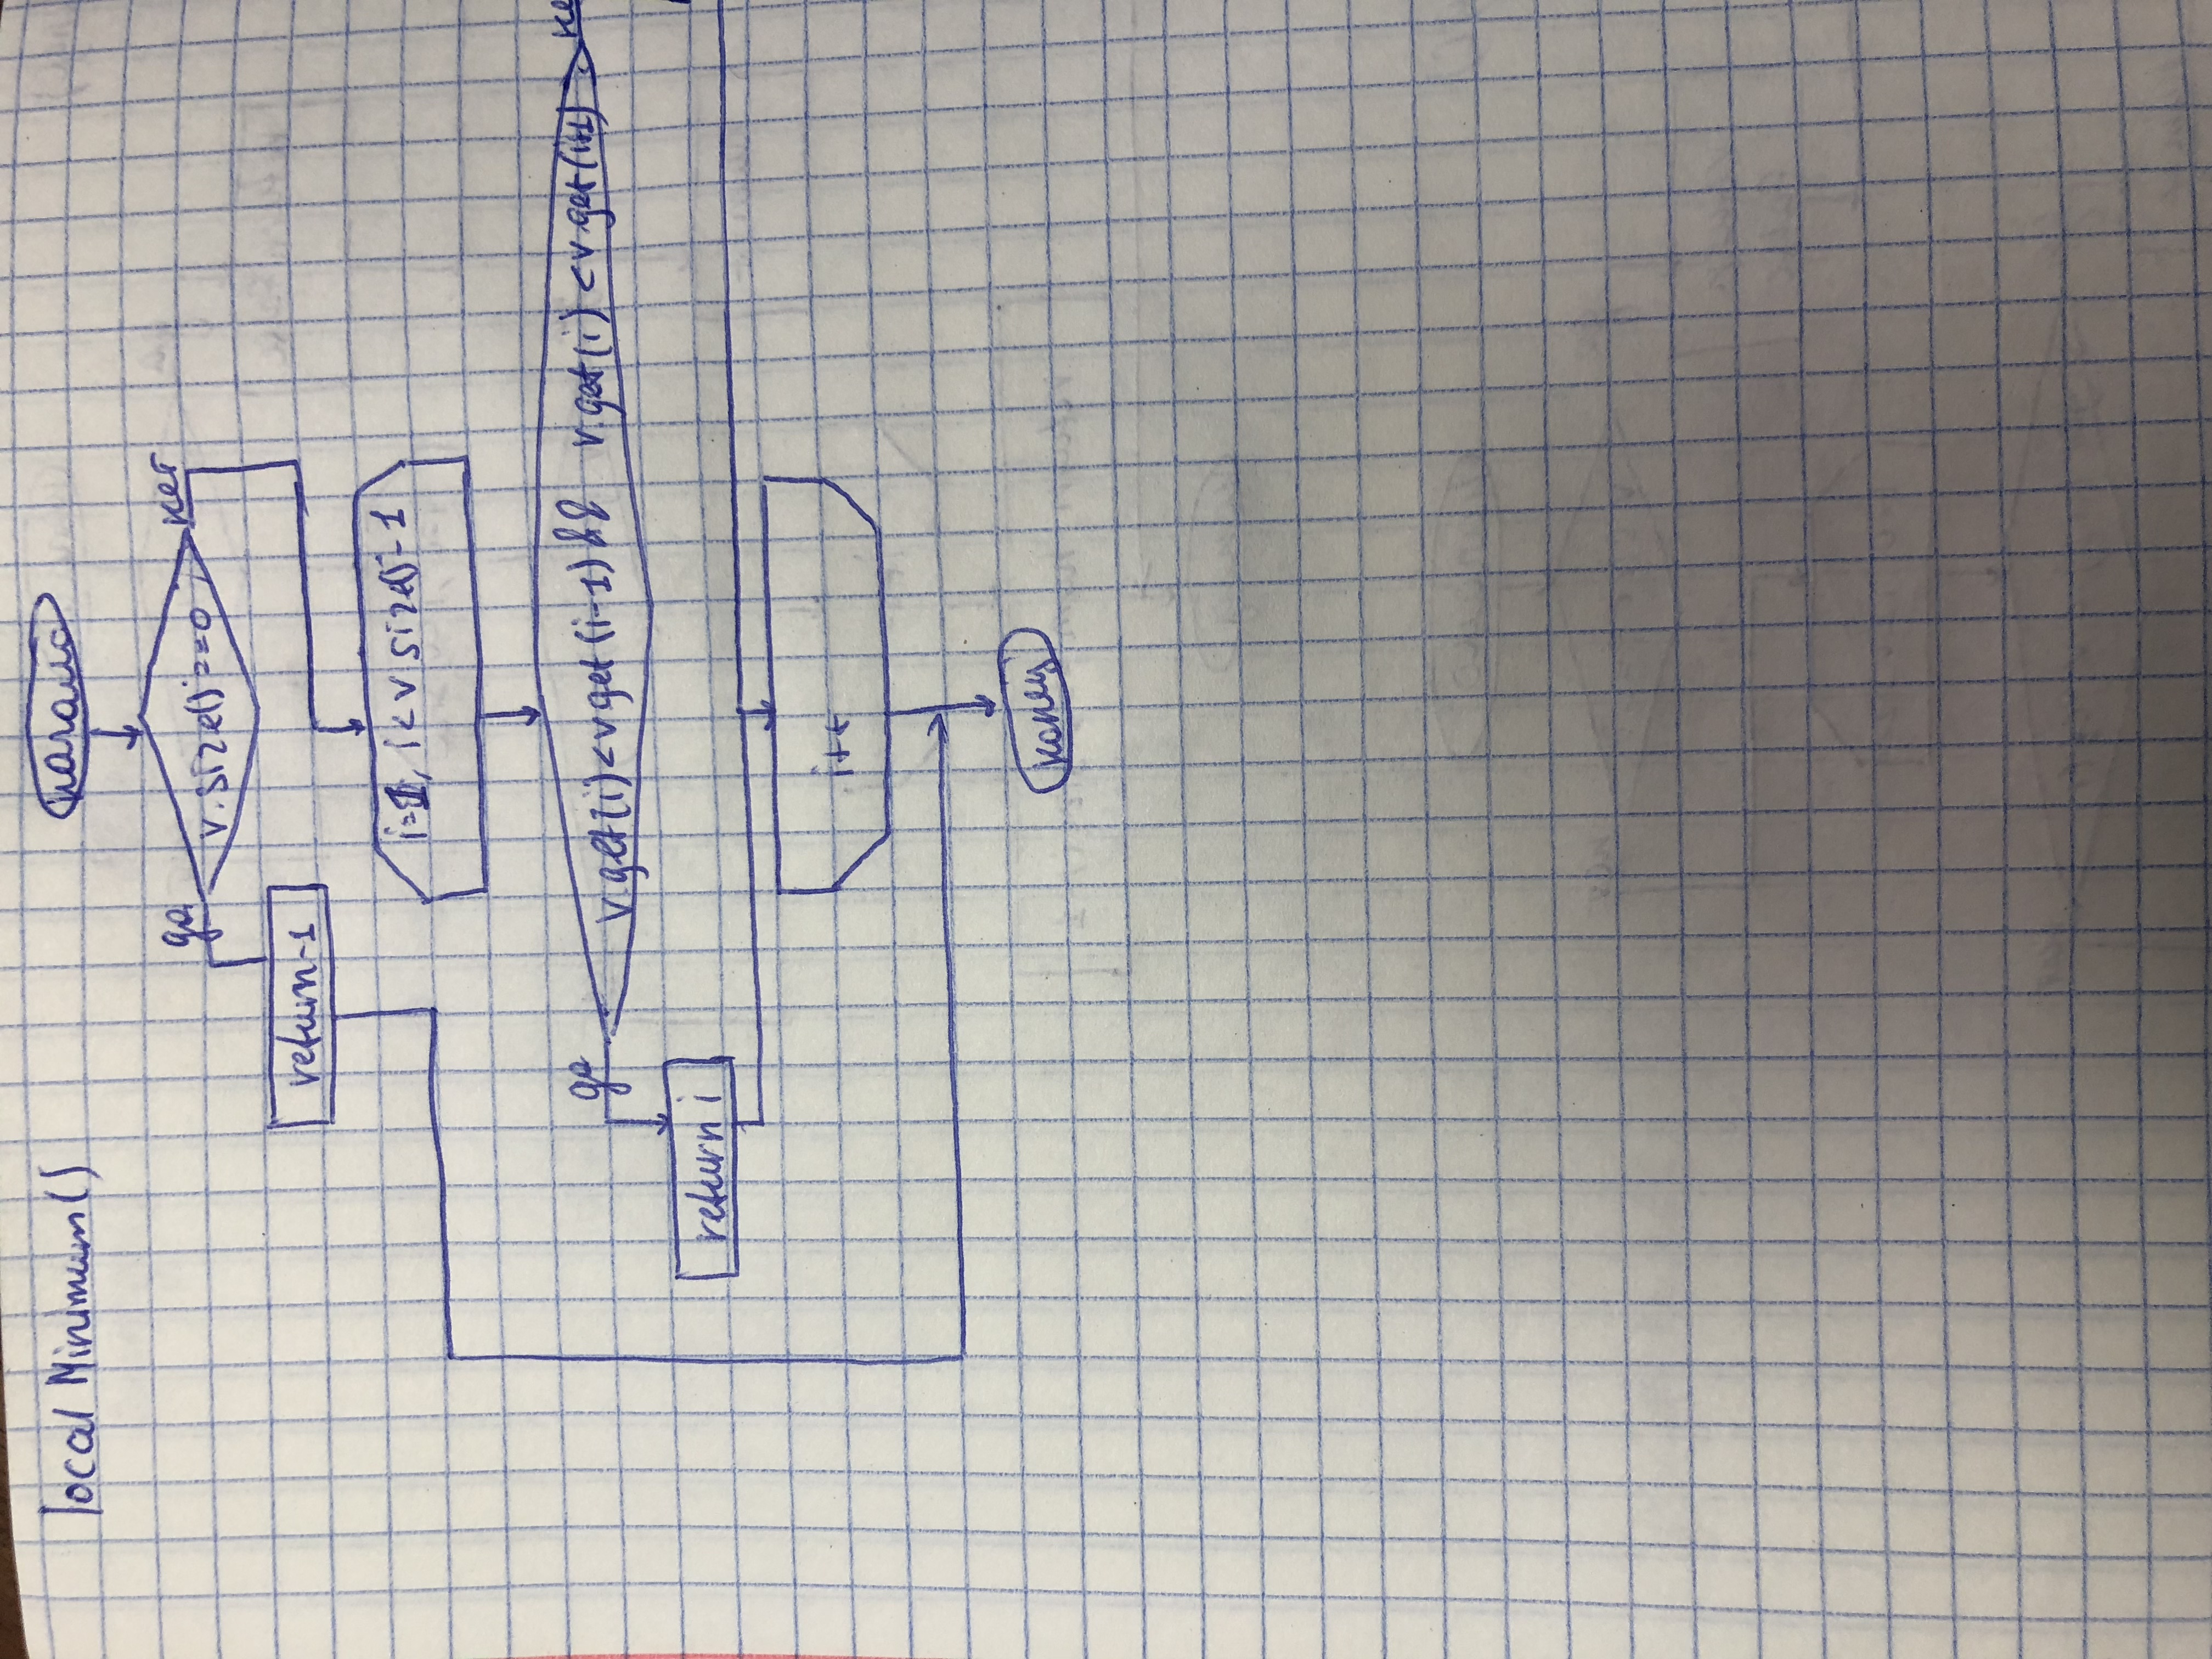 local Minimum()
начало
да
v.size()==0
нет
return-1
i=1, i<v size()-1
да
v.get(i)<v get(i-1) && v.get(i)<v.get(i+1)
не
return i
i++
конец